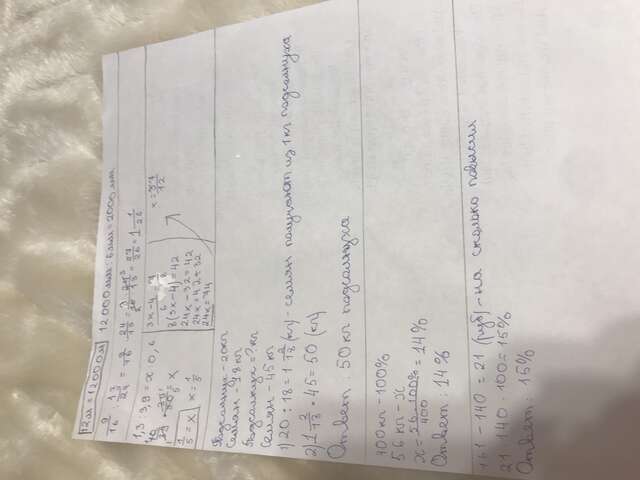 12м = 12000мм 12000мм : 6мм = 2000мм
1,3 : 3,9 = x : 0,6
3x-4
8(3x-4) = 42
24x-32 = 42
24x = 42+32
24x = 74
1/5 = x
x = 1/5
Подсолнух - 20кг
Семян - 18 кг
Подсолнух - ? кг
Семян - 45 кг
1) 20 : 18 = 1 2/18 (кг) - семян получают из 1 кг подсолнуха
2) 1 2/18 · 45 = 50 (кг)
Ответ: 50 кг подсолнуха
400 кг - 100%
56 кг - x
x = 56·100%/400 = 14%
Ответ: 14%
161 - 140 = 21 (руб) - на сколько повысил
21 : 140 · 100 = 15%
Ответ: 15%